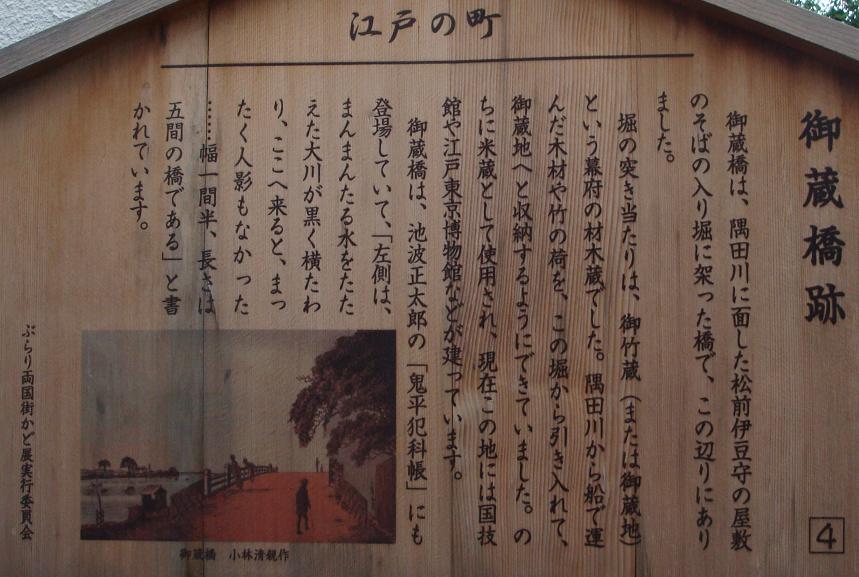 江戸の町
御蔵橋跡
御蔵橋は、隅田川に面した松前伊豆守の屋敷
のそばの入り堀に架った橋で、この辺りにあり
ました。
堀の突き当たりは、御竹蔵（または御蔵地）
という幕府の材木蔵でした。隅田川から船で運
んだ木材や竹の荷を、この堀から引き入れて、
御蔵地へと収納するようにできていました。の
ちに米蔵として使用され、現在この地には国技
館や江戸東京博物館などが建っています。
御蔵橋は、池波正太郎の「鬼平犯科帳」にも
登場していて、「左側は、
まんまんたる水をたた
えた大川が黒く横たわ
り、ここへ来ると、まっ
たく人影もなかった
……幅一間半、長さは
五間の橋である」と書
かれています。
御蔵橋 小林清親作
ぶらり両国街かど展実行委員会
4